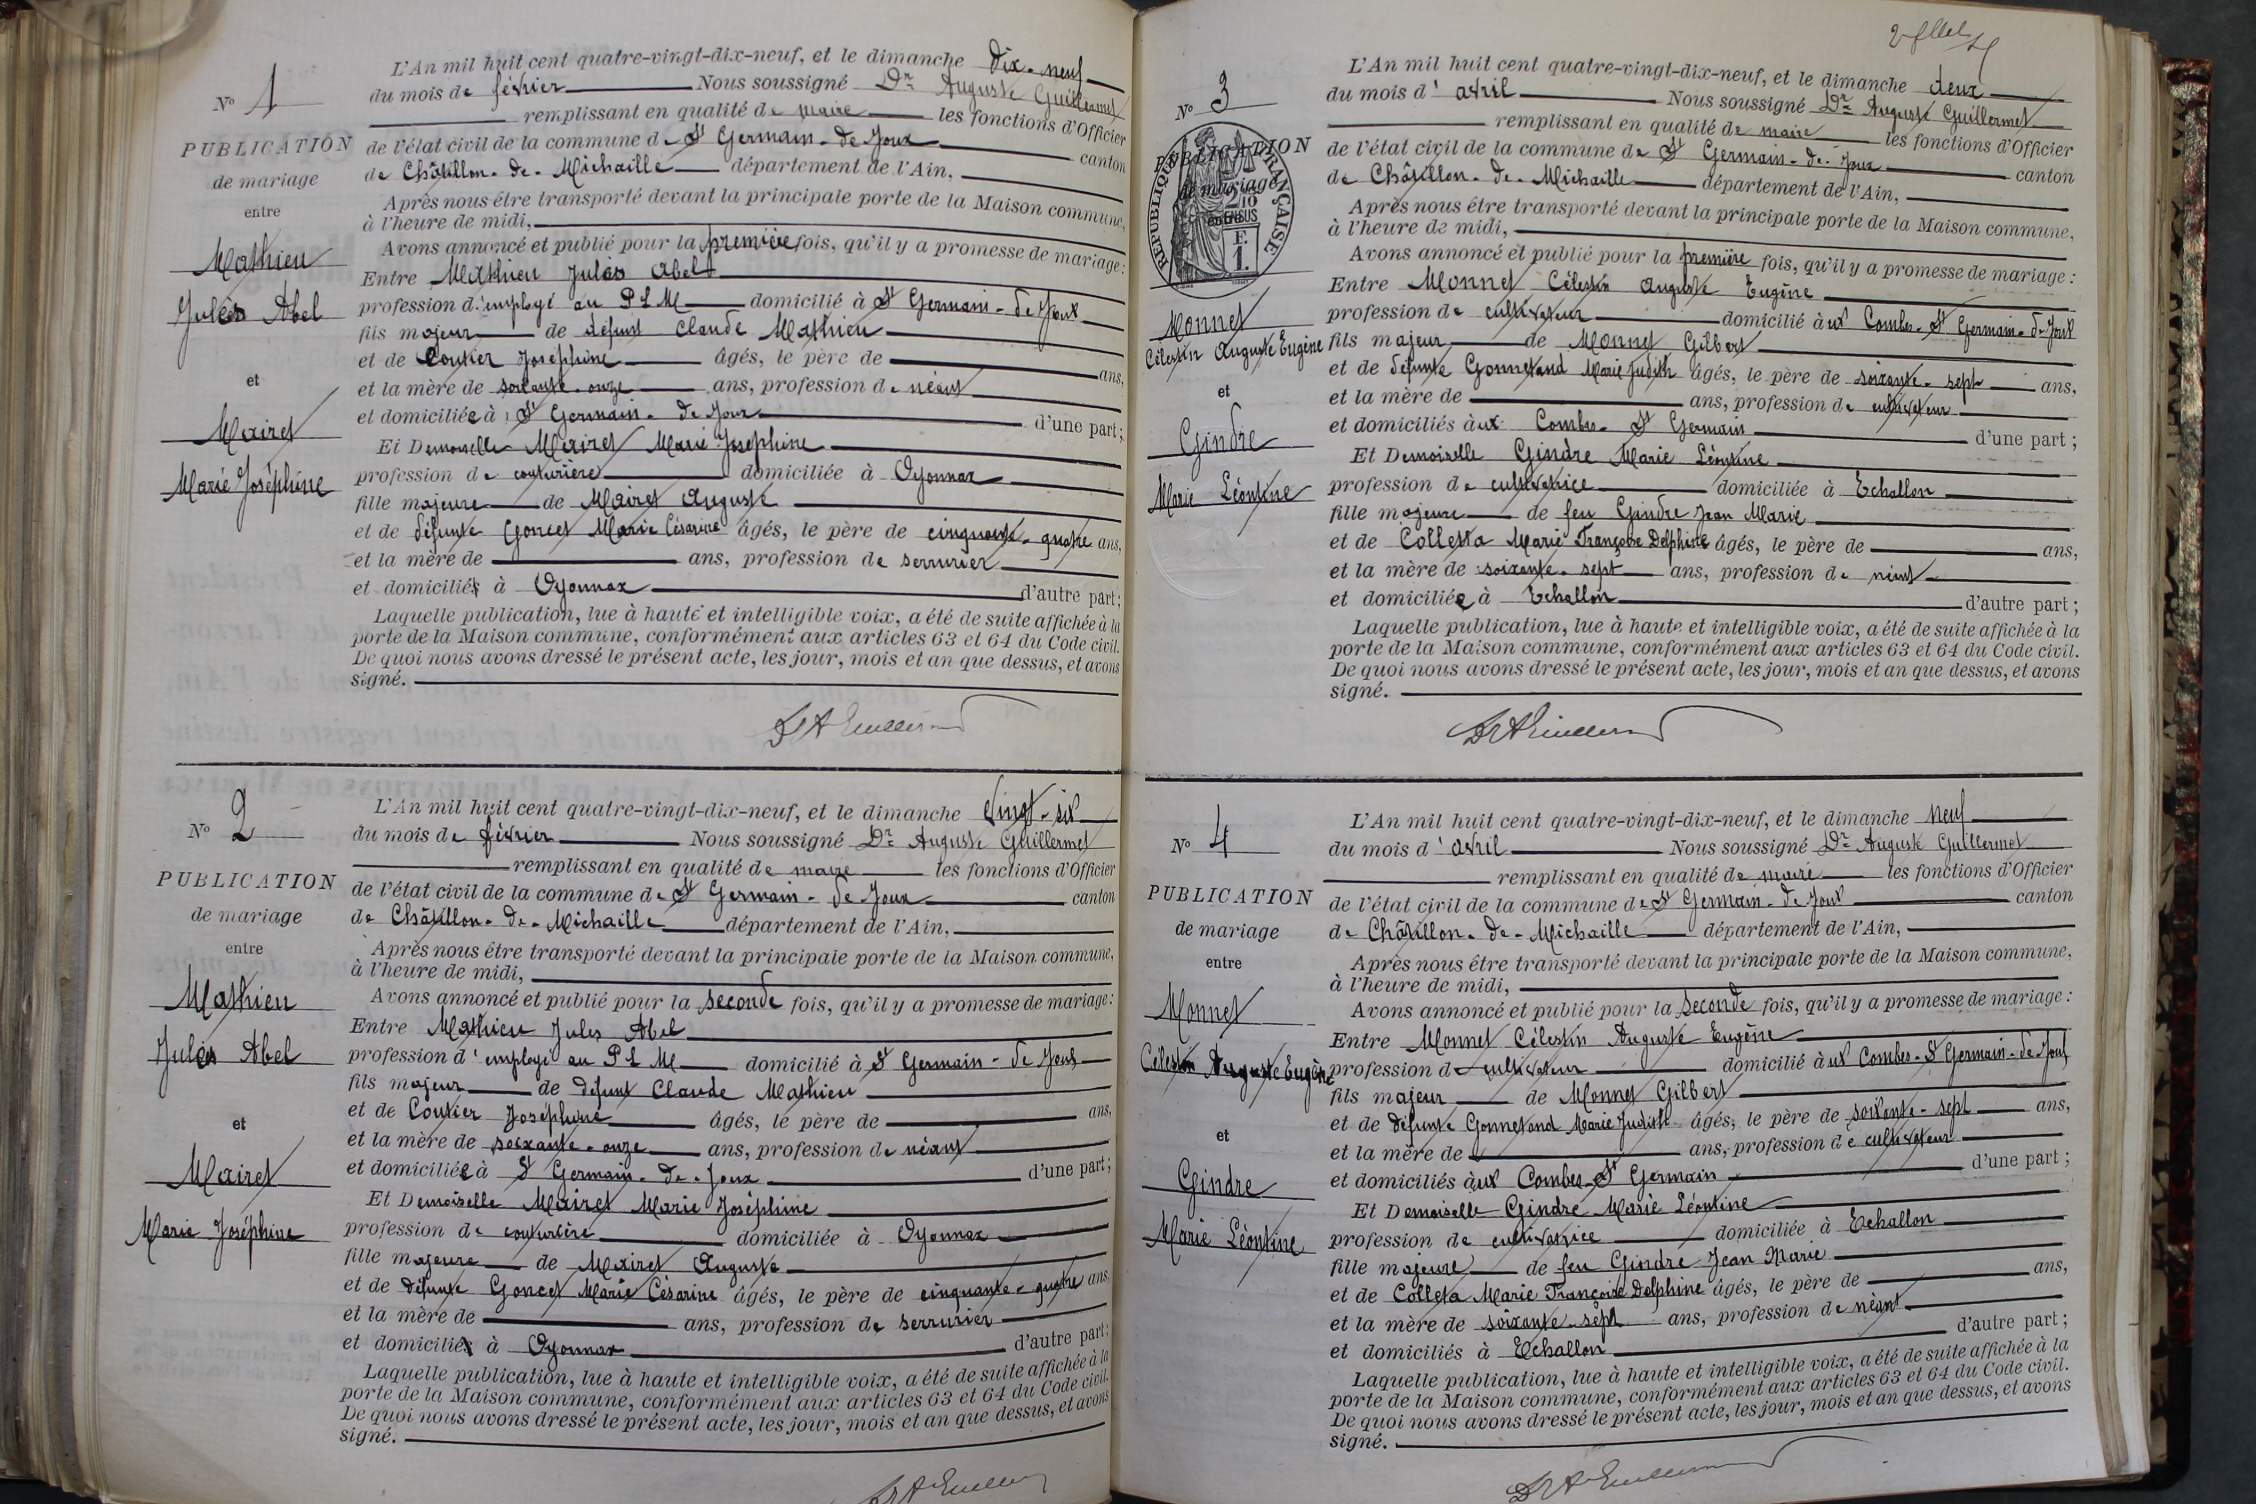 N° 1
PUBLICATION
de mariage
entre
Mathieu
Jules Abel
et
Mairet
Marie Joséphine
L'An mil huit cent quatre-vingt-dix-neuf, et le dimanche dix-neuf
du mois de février Nous soussigné Dr Auguste Guillermet
remplissant en qualité de maire les fonctions d'Officier
de l'état civil de la commune de St Germain-de-Joux canton
de Châtillon-de-Michaille département de l'Ain,
Après nous être transporté devant la principale porte de la Maison commune,
à l'heure de midi,
Avons annoncé et publié pour la première fois, qu'il y a promesse de mariage:
Entre Mathieu Jules Abel
profession d'employé au P L M domicilié à St Germain-de-Joux
fils majeur de défunt Claude Mathieu
et de Coutier Joséphine âgés, le père de ans,
et la mère de soixante-onze ans, profession de néant
et domiciliée à St Germain-de-Joux d'une part;
Et Demoiselle Mairet Marie Joséphine
profession de couturière domiciliée à Oyonnax
fille majeure de Mairet Auguste
et de défunte Goncet Marie Césarine âgés, le père de cinquante-quatre ans,
et la mère de ans, profession de serrurier
et domicilié à Oyonnax d'autre part;
Laquelle publication, lue à haute et intelligible voix, a été de suite affichée à la
porte de la Maison commune, conformément aux articles 63 et 64 du Code civil.
De quoi nous avons dressé le présent acte, les jour, mois et an que dessus, et avons
signé.
N° 2
PUBLICATION
de mariage
entre
Mathieu
Jules Abel
et
Mairet
Marie Joséphine
L'An mil huit cent quatre-vingt-dix-neuf, et le dimanche vingt-six
du mois de février Nous soussigné Dr Auguste Guillermet
remplissant en qualité de maire les fonctions d'Officier
de l'état civil de la commune de St Germain-de-Joux canton
de Châtillon-de-Michaille département de l'Ain,
Après nous être transporté devant la principale porte de la Maison commune,
à l'heure de midi,
Avons annoncé et publié pour la seconde fois, qu'il y a promesse de mariage:
Entre Mathieu Jules Abel
profession d'employé au P L M domicilié à St Germain-de-Joux
fils majeur de défunt Claude Mathieu
et de Coutier Joséphine âgés, le père de ans,
et la mère de soixante-onze ans, profession de néant
et domiciliée à St Germain-de-Joux d'une part;
Et Demoiselle Mairet Marie Joséphine
profession de couturière domiciliée à Oyonnax
fille majeure de Mairet Auguste
et de défunte Goncet Marie Césarine âgés, le père de cinquante-quatre ans
et la mère de ans, profession de serrurier
et domicilié à Oyonnax d'autre part;
Laquelle publication, lue à haute et intelligible voix, a été de suite affichée à la
porte de la Maison commune, conformément aux articles 63 et 64 du Code civil.
De quoi nous avons dressé le présent acte, les jour, mois et an que dessus, et avons
signé.
N° 3
PUBLICATION
de mariage
entre
RÉPUBLIQUE FRANÇAISE
2/10
EN SUS
F.
1.
Monnet
Célestin Auguste Eugène
et
Gindre
Marie Léontine
L'An mil huit cent quatre-vingt-dix-neuf, et le dimanche deux
du mois d'avril Nous soussigné Dr Auguste Guillermet
remplissant en qualité de maire les fonctions d'Officier
de l'état civil de la commune de St Germain-de-Joux canton
de Châtillon-de-Michaille département de l'Ain,
Après nous être transporté devant la principale porte de la Maison commune,
à l'heure de midi,
Avons annoncé et publié pour la première fois, qu'il y a promesse de mariage:
Entre Monnet Célestin Auguste Eugène
profession de cultivateur domicilié aux Combes-St Germain-de-Joux
fils majeur de Monnet Gilbert
et de défunte Gonnetand Marie Judith âgés, le père de soixante-sept ans,
et la mère de ans, profession de cultivateur
et domiciliés aux Combes-St Germain d'une part;
Et Demoiselle Gindre Marie Léontine
profession de cultivatrice domiciliée à Echallon
fille majeure de feu Gindre Jean Marie
et de Colletta Marie Françoise Delphine âgés, le père de ans,
et la mère de soixante-sept ans, profession de néant
et domiciliée à Echallon d'autre part;
Laquelle publication, lue à haute et intelligible voix, a été de suite affichée à la
porte de la Maison commune, conformément aux articles 63 et 64 du Code civil.
De quoi nous avons dressé le présent acte, les jour, mois et an que dessus, et avons
signé.
N° 4
PUBLICATION
de mariage
entre
Monnet
Célestin Auguste Eugène
et
Gindre
Marie Léontine
L'An mil huit cent quatre-vingt-dix-neuf, et le dimanche neuf
du mois d'avril Nous soussigné Dr Auguste Guillermet
remplissant en qualité de maire les fonctions d'Officier
de l'état civil de la commune de St Germain-de-Joux canton
de Châtillon-de-Michaille département de l'Ain,
Après nous être transporté devant la principale porte de la Maison commune,
à l'heure de midi,
Avons annoncé et publié pour la seconde fois, qu'il y a promesse de mariage:
Entre Monnet Célestin Auguste Eugène
profession de cultivateur domicilié aux Combes-St Germain-de-Joux
fils majeur de Monnet Gilbert
et de défunte Gonnetand Marie Judith âgés, le père de soixante-sept ans,
et la mère de ans, profession de cultivateur
et domiciliés aux Combes-St Germain d'une part;
Et Demoiselle Gindre Marie Léontine
profession de cultivatrice domiciliée à Echallon
fille majeure de feu Gindre Jean Marie
et de Colleta Marie Françoise Delphine âgés, le père de ans,
et la mère de soixante-sept ans, profession de néant
et domiciliés à Echallon d'autre part;
Laquelle publication, lue à haute et intelligible voix, a été de suite affichée à la
porte de la Maison commune, conformément aux articles 63 et 64 du Code civil.
De quoi nous avons dressé le présent acte, les jour, mois et an que dessus, et avons
signé.